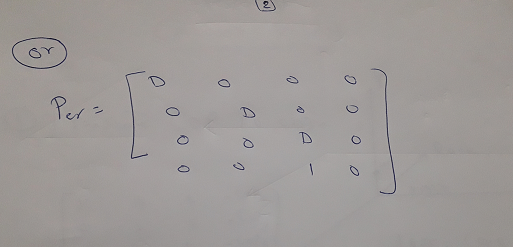 2
or
Per = [ D 0 0 0
0 D 0 0
0 0 D 0
0 0 1 0 ]